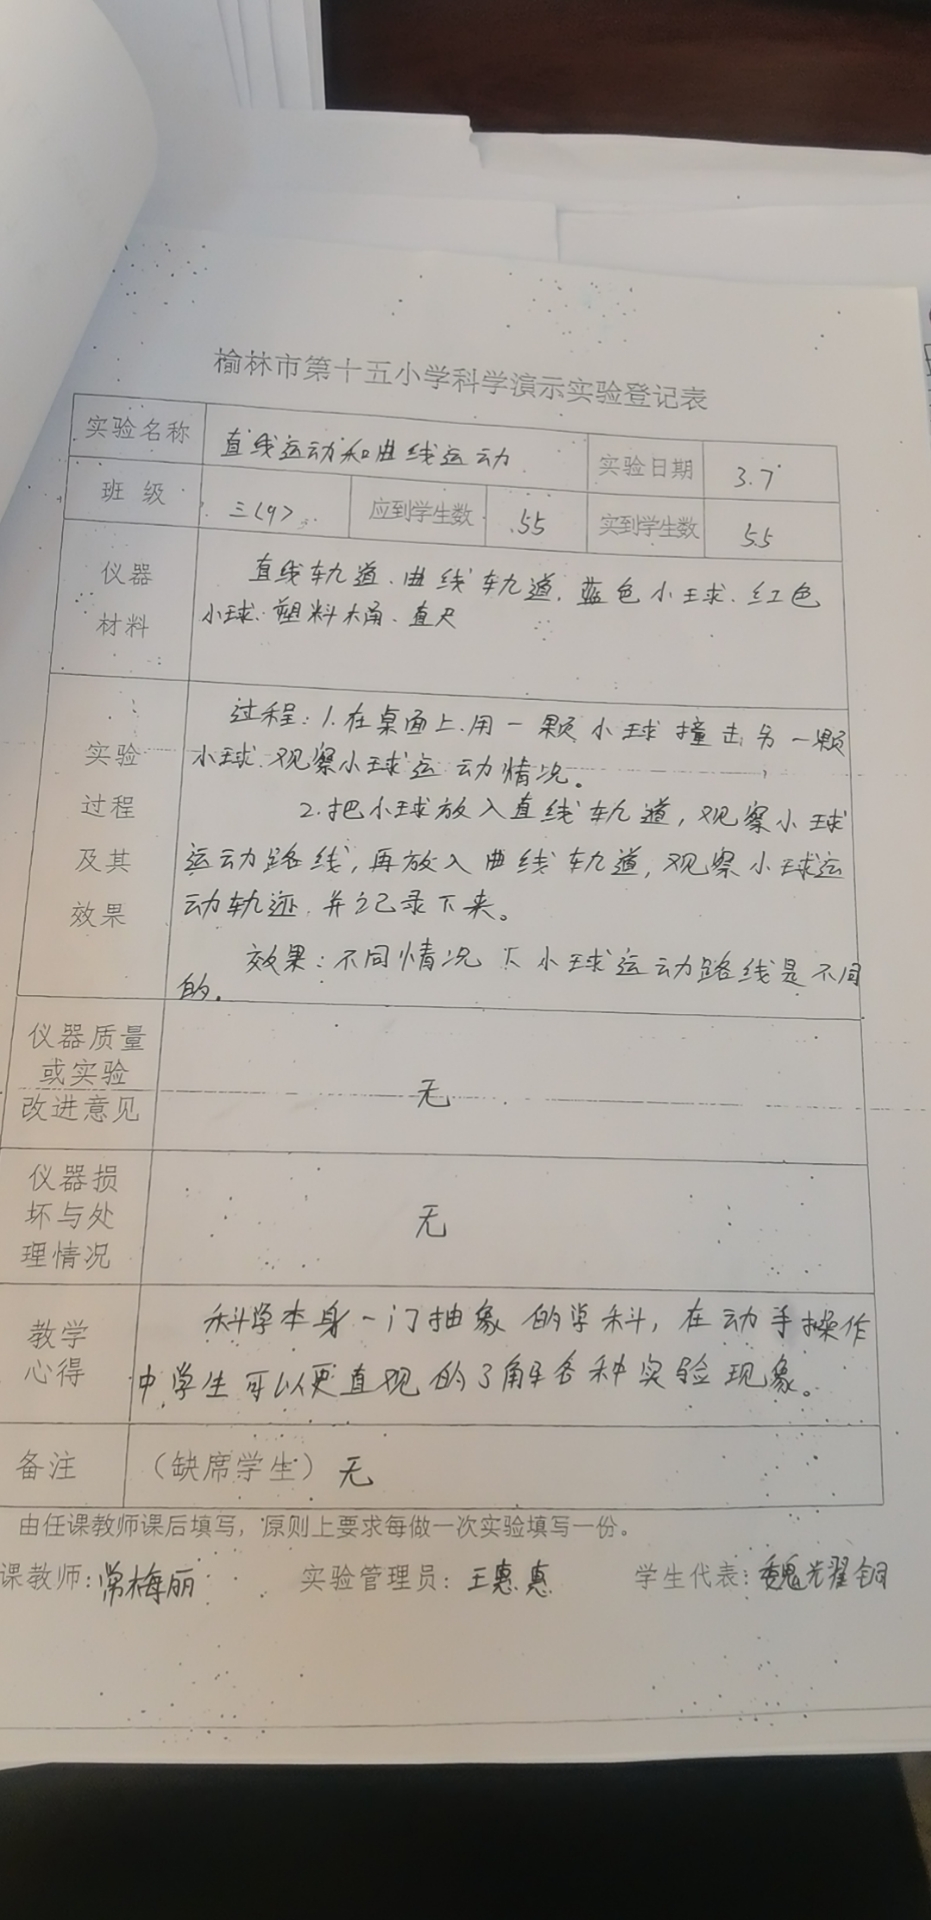 榆林市第十五小学科学演示实验登记表
实验名称 直线运动和曲线运动 实验日期 3.7
班 级 三(9) 应到学生数 55 实到学生数 55
仪器
材料
直线轨道、曲线轨道、蓝色小球、红色
小球、塑料水桶、直尺
实验
过程
及其
效果
过程:1.在桌面上用一颗小球撞击另一颗
小球.观察小球运动情况。
2.把小球放入直线轨道,观察小球
运动路线,再放入曲线轨道,观察小球运
动轨迹.并记录下来。
效果:不同情况下小球运动路线是不同
的.
仪器质量
或实验
改进意见
无
仪器损
坏与处
理情况
无
教学
心得
科学本身一门抽象的学科,在动手操作
中,学生可以更直观的了解各种实验现象。
备注 (缺席学生)无
由任课教师课后填写,原则上要求每做一次实验填写一份。
课教师:常梅丽 实验管理员:王惠惠 学生代表:魏